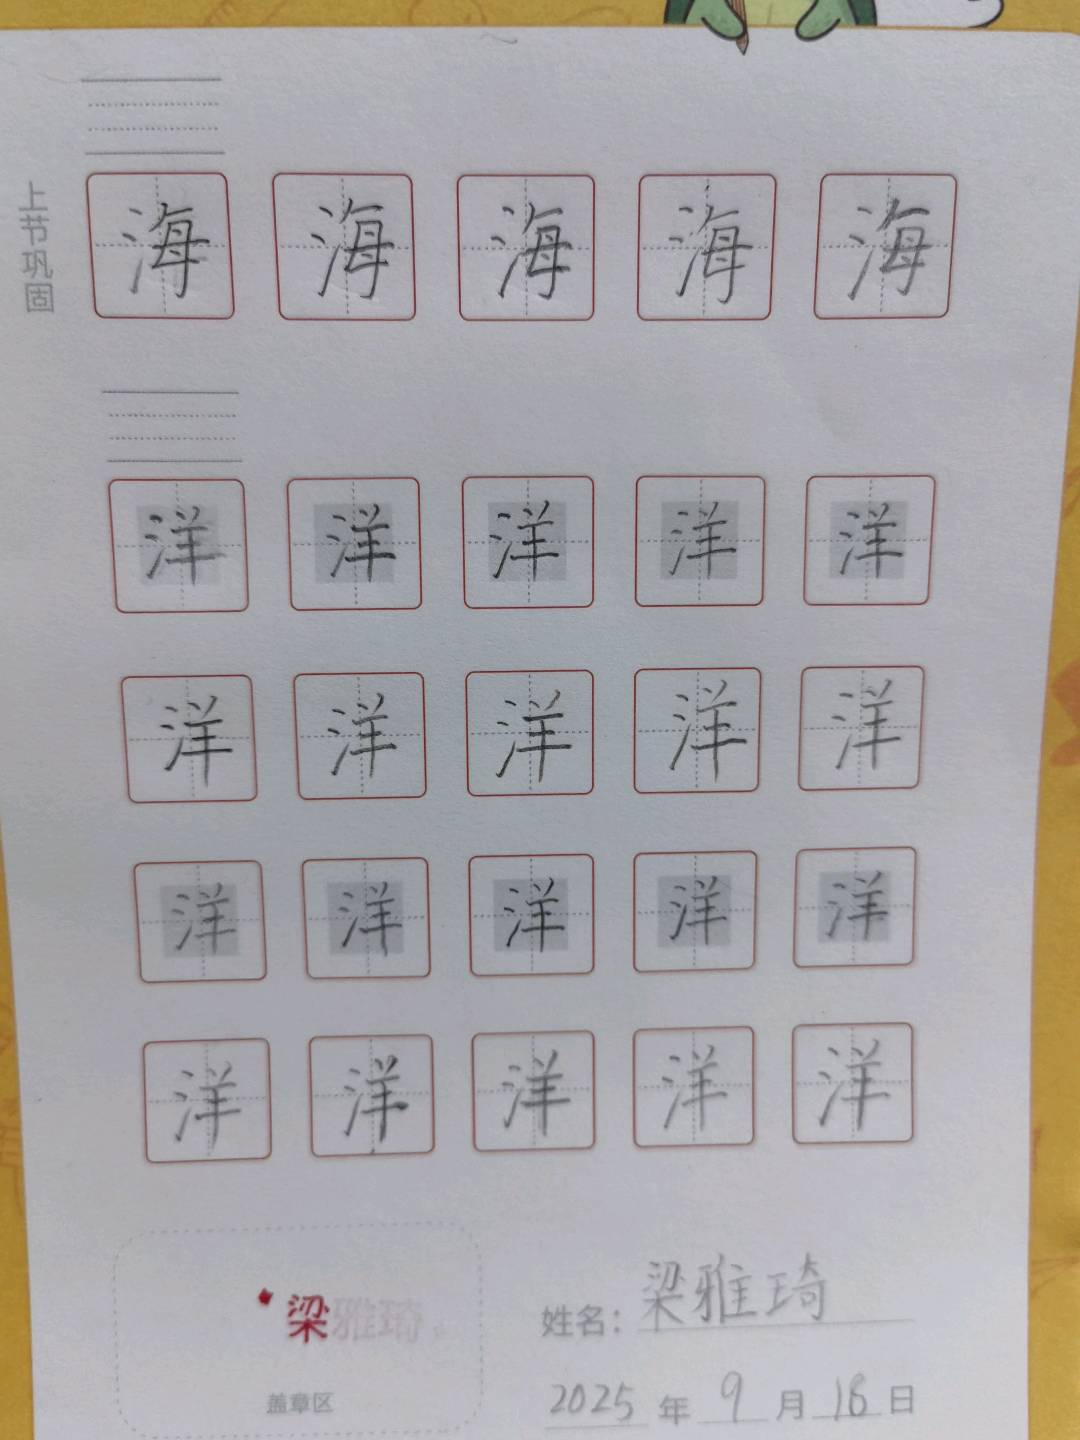 上节巩固
海 海 海 海 海
洋 洋 洋 洋 洋
洋 洋 洋 洋 洋
洋 洋 洋 洋 洋
洋 洋 洋 洋 洋
梁雅琦
盖章区
姓名：梁雅琦
2025 年 9 月 18 日